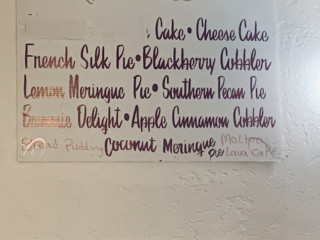 Cake • Cheese Cake
French Silk Pie • Blackberry Cobbler
Lemon Meringue Pie • Southern Pecan Pie
Brownie Delight • Apple Cinnamon Cobbler
Bread Pudding Coconut Meringue Pie Molten Lava Cake